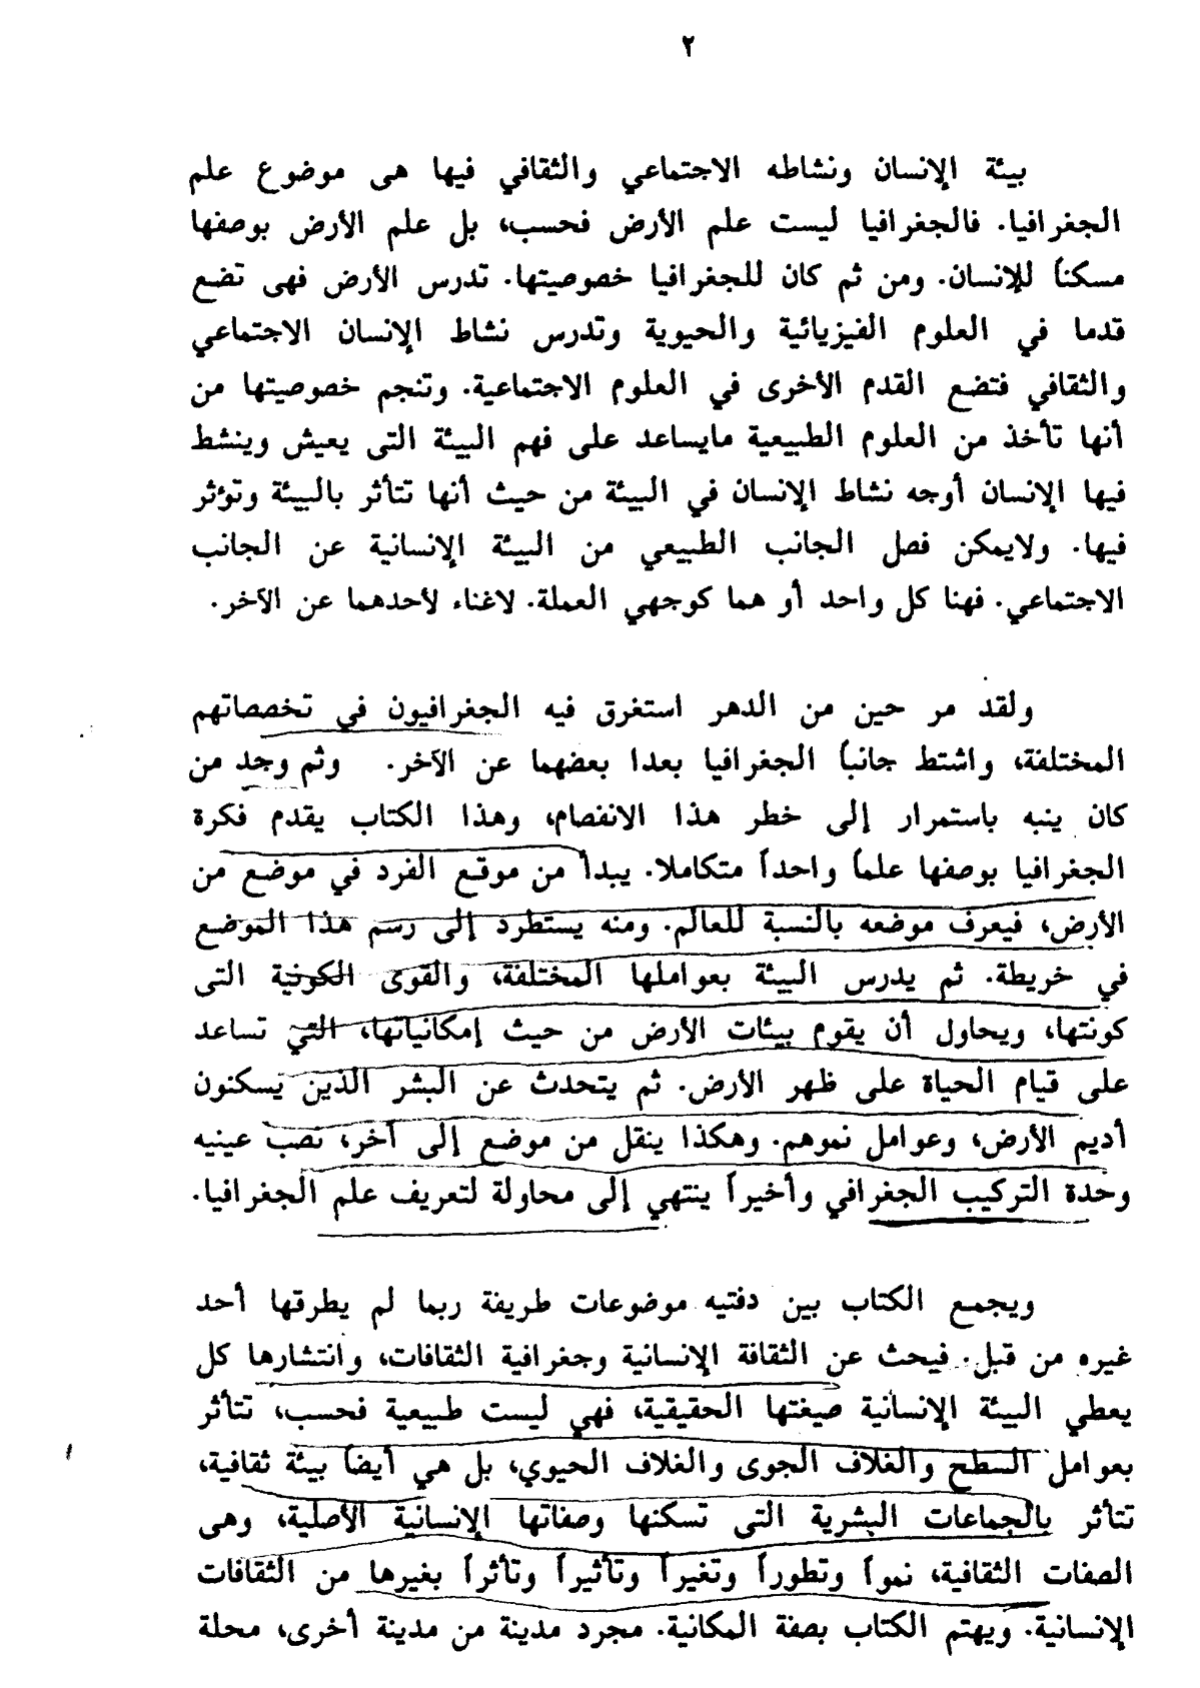 ٢
بيئة الإنسان ونشاطه الاجتماعي والثقافي فيها هى موضوع علم
الجغرافيا. فالجغرافيا ليست علم الأرض فحسب، بل علم الأرض بوصفها
مسكناً للإنسان. ومن ثم كان للجغرافيا خصوصيتها. تدرس الأرض فهى تضع
قدما في العلوم الفيزيائية والحيوية وتدرس نشاط الإنسان الاجتماعي
والثقافي فتضع القدم الأخرى في العلوم الاجتماعية. وتنجم خصوصيتها من
أنها تأخذ من العلوم الطبيعية مايساعد على فهم البيئة التى يعيش وينشط
فيها الإنسان أوجه نشاط الإنسان في البيئة من حيث أنها تتأثر بالبيئة وتؤثر
فيها. ولايمكن فصل الجانب الطبيعي من البيئة الإنسانية عن الجانب
الاجتماعي. فهنا كل واحد أو هما كوجهي العملة. لاغناء لأحدهما عن الآخر.
ولقد مر حين من الدهر استغرق فيه الجغرافيون في تخصصاتهم
المختلفة، واشتط جانباً الجغرافيا بعدا بعضهما عن الآخر. وثم وجد من
كان ينبه باستمرار إلى خطر هذا الانفصام، وهذا الكتاب يقدم فكرة
الجغرافيا بوصفها علماً واحداً متكاملا. يبدأ من موقع الفرد في موضع من
الأرض، فيعرف موضعه بالنسبة للعالم. ومنه يستطرد إلى رسم هذا الموضع
في خريطة. ثم يدرس البيئة بعواملها المختلفة، والقوى الكونية التى
كونتها، ويحاول أن يقوم بيئات الأرض من حيث إمكانياتها، التي تساعد
على قيام الحياة على ظهر الأرض. ثم يتحدث عن البشر الذين يسكنون
أديم الأرض، وعوامل نموهم. وهكذا ينقل من موضع إلى آخر، نصب عينيه
وحدة التركيب الجغرافي وأخيراً ينتهي إلى محاولة لتعريف علم الجغرافيا.
ويجمع الكتاب بين دفتيه موضوعات طريفة ربما لم يطرقها أحد
غيره من قبل. فيحث عن الثقافة الإنسانية وجغرافية الثقافات، وانتشارها كل
يعطي البيئة الإنسانية صيغتها الحقيقية، فهي ليست طبيعية فحسب، تتأثر
بعوامل السطح والغلاف الجوى والغلاف الحيوي، بل هي أيضاً بيئة ثقافية،
تتأثر بالجماعات البشرية التى تسكنها وصفاتها الإنسانية الأصلية، وهى
الصفات الثقافية، نمواً وتطوراً وتغيراً وتأثيراً وتأثراً بغيرها من الثقافات
الإنسانية. ويهتم الكتاب بصفة المكانية. مجرد مدينة من مدينة أخرى، محلة